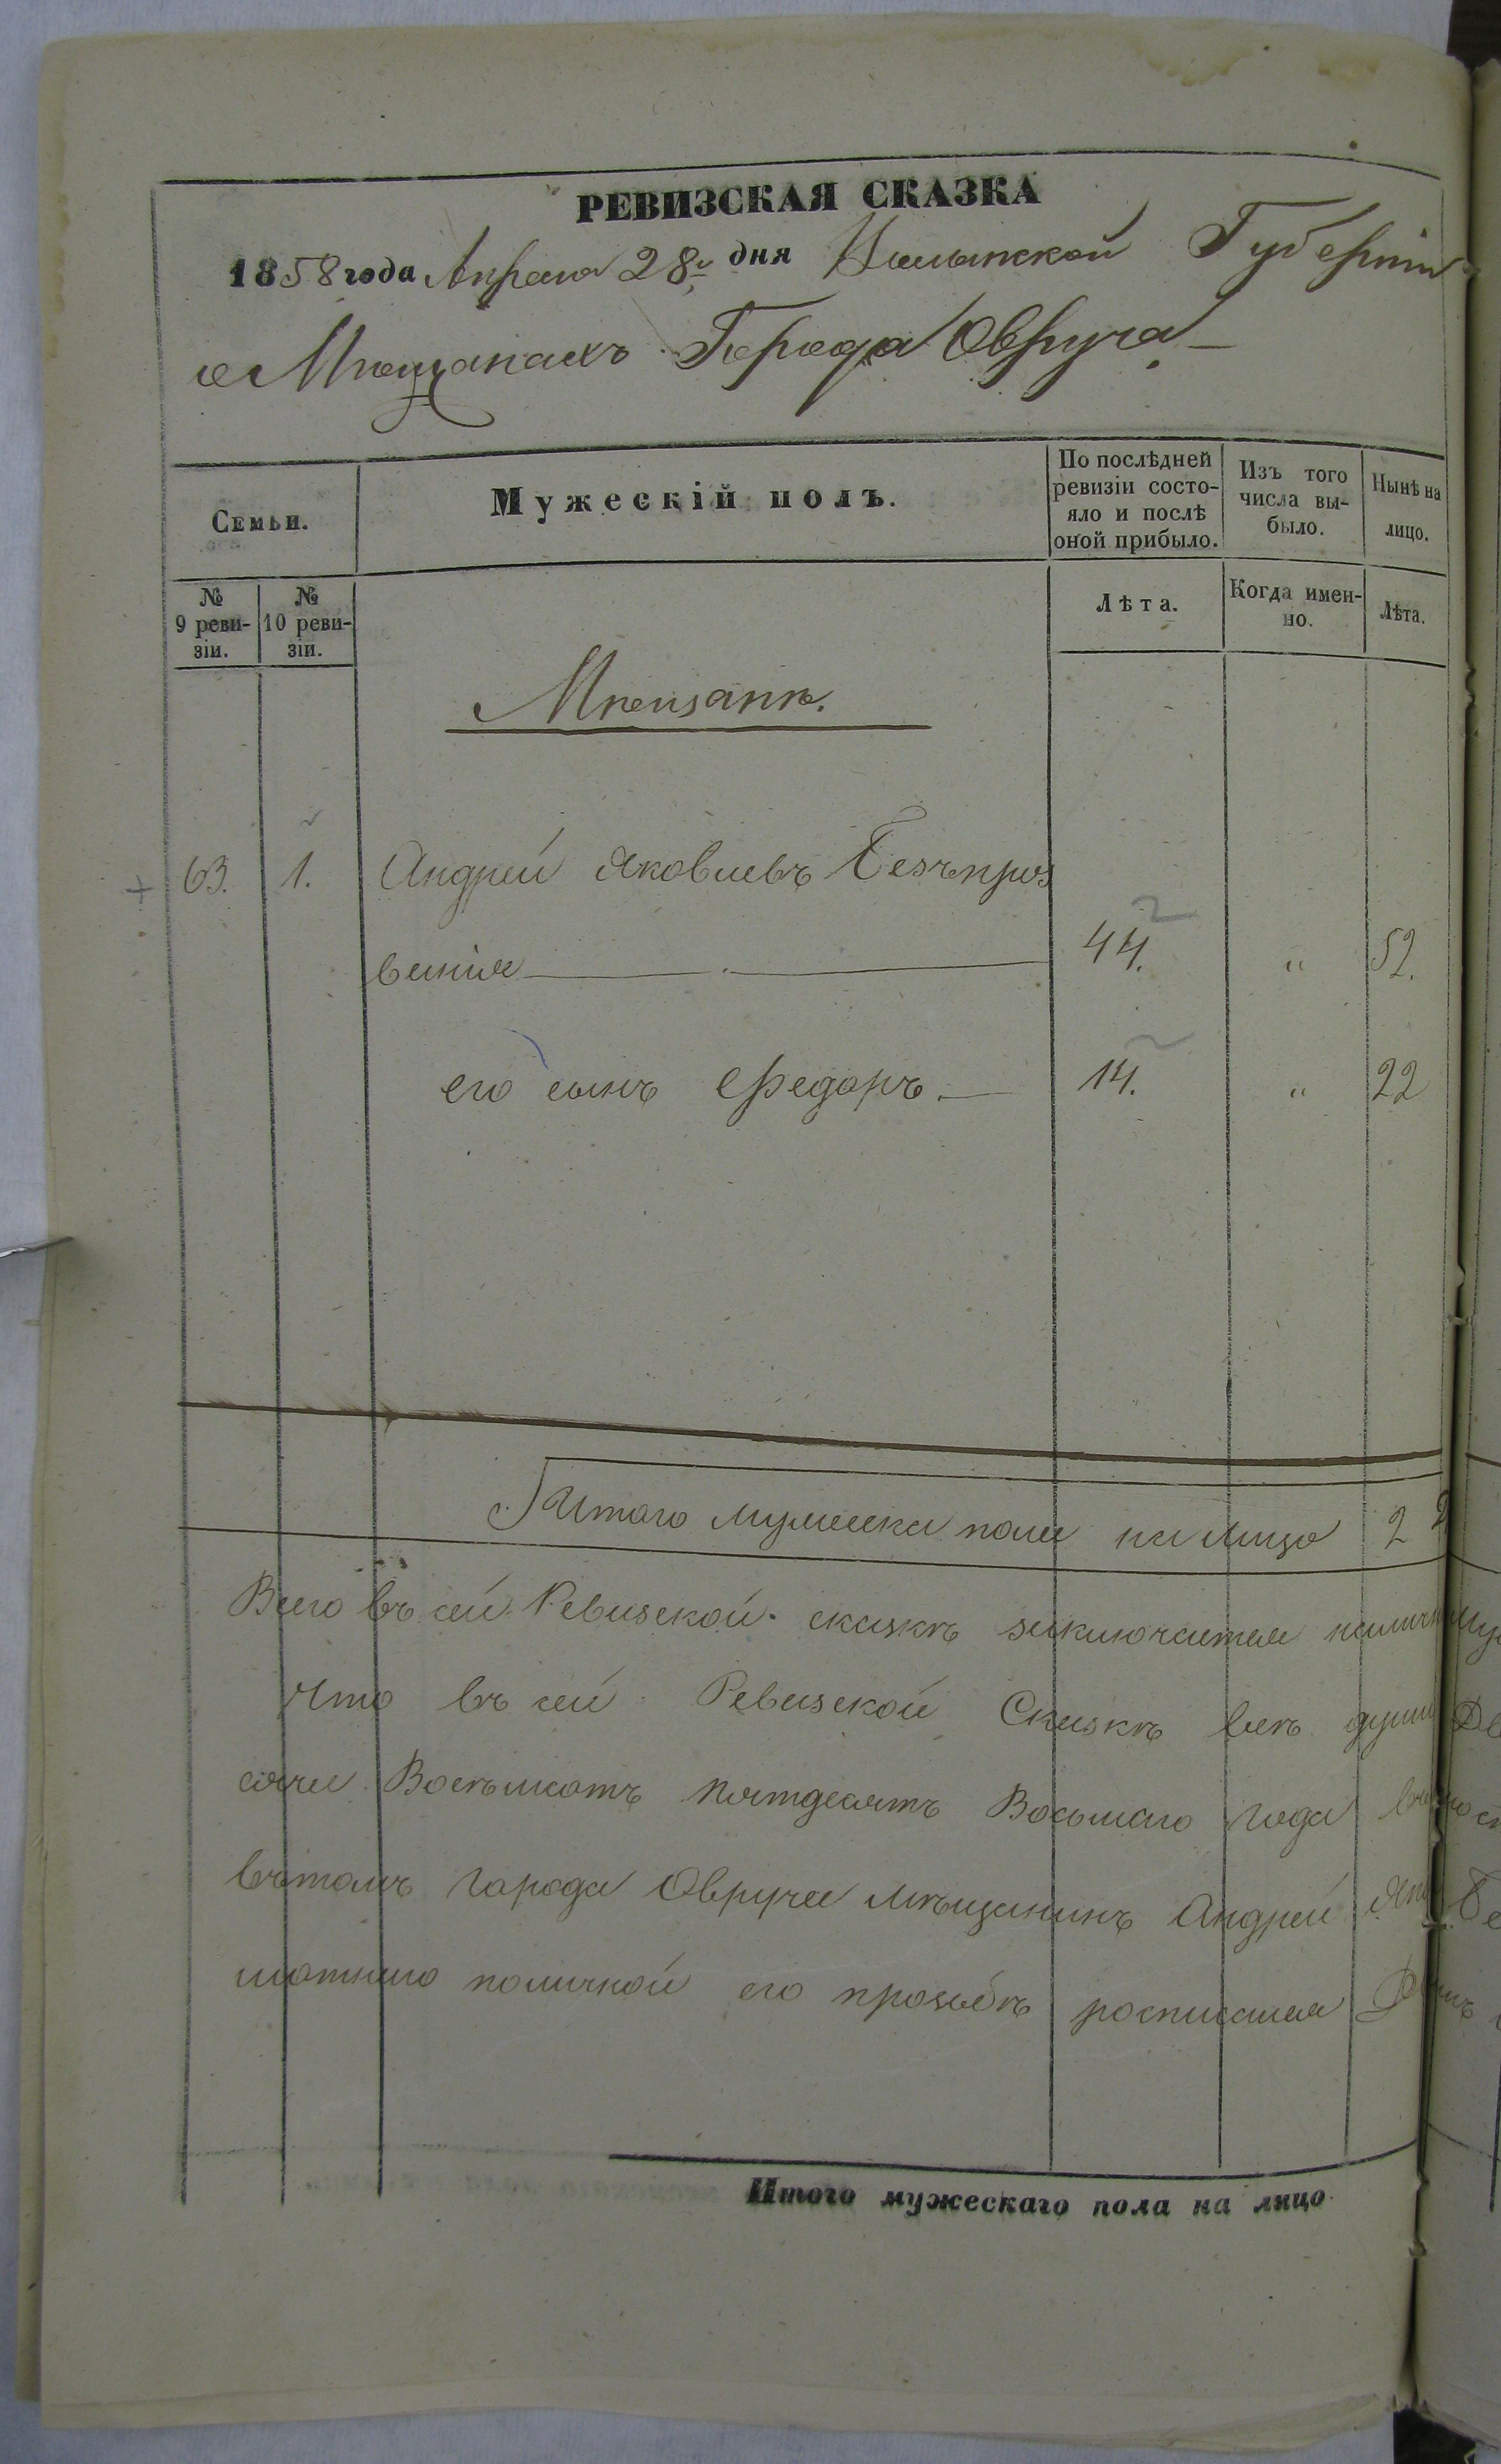 РЕВИЗСКАЯ СКАЗКА
1858 года Апреля 28 дня Волынской Губернiи
о Мѣщанахъ Города Овруча
Семьи.
Мужескій полъ.
По послѣдней ревизіи состо-
яло и послѣ
оной прибыло.
Изъ того
числа вы-
было.
Нынѣ на
лицо.
№
9 реви-
зіи.
№
10 реви-
зіи.
Лѣта.
Когда имен-
но.
Лѣта.
Мѣщанѣ.
63. 1. Андрей Яковлевъ Безъ
44. " 52.
его сынъ Федоръ 14. " 22
Итого мужеска пола на лицо 2
Всего въ сей Ревизской сказкѣ заключается
Что въ сей Ревизской Сказкѣ всѣ души
Восемьсотъ пятдесятъ Восьмаго года
въ томъ города Овруча мѣщанинъ Андрей
его прозьбѣ росписался
Итого мужескаго пола на лицо